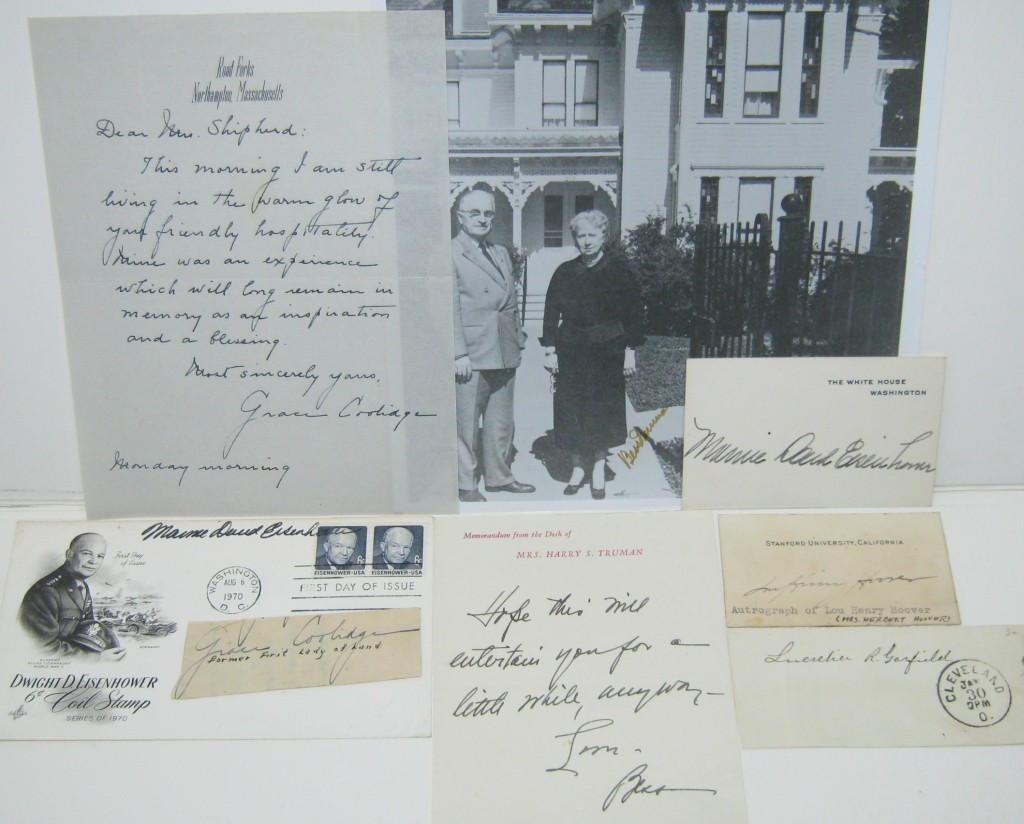 Road Forks
Northampton, Massachusetts
Dear Mrs. Shipherd:
This morning I am still
living in the warm glow of
your friendly hospitality.
Mine was an experience
which will long remain in
memory as an inspiration
and a blessing.
Most sincerely yours,
Grace Coolidge
Monday morning
Bess Truman
THE WHITE HOUSE
WASHINGTON
Mamie Doud Eisenhower
First Day
of Issue
Mamie Doud Eisenhower
WASHINGTON
AUG 6
1970
D.C.
6c
EISENHOWER·USA
6c
EISENHOWER·USA
FIRST DAY OF ISSUE
Grace Coolidge
Former First Lady of Land
DWIGHT D. EISENHOWER
6¢ Coil Stamp
SERIES OF 1970
Memorandum from the Desk of
MRS. HARRY S. TRUMAN
Hope this will
entertain you for a
little while, anyway—
Love—
Bess
STANFORD UNIVERSITY, CALIFORNIA
Lou Henry Hoover
Autrograph of Lou Henry Hoover
(MRS. HERBERT HOOVER)
Lucretia R. Garfield
CLEVELAND
JAN
30
2PM
O.